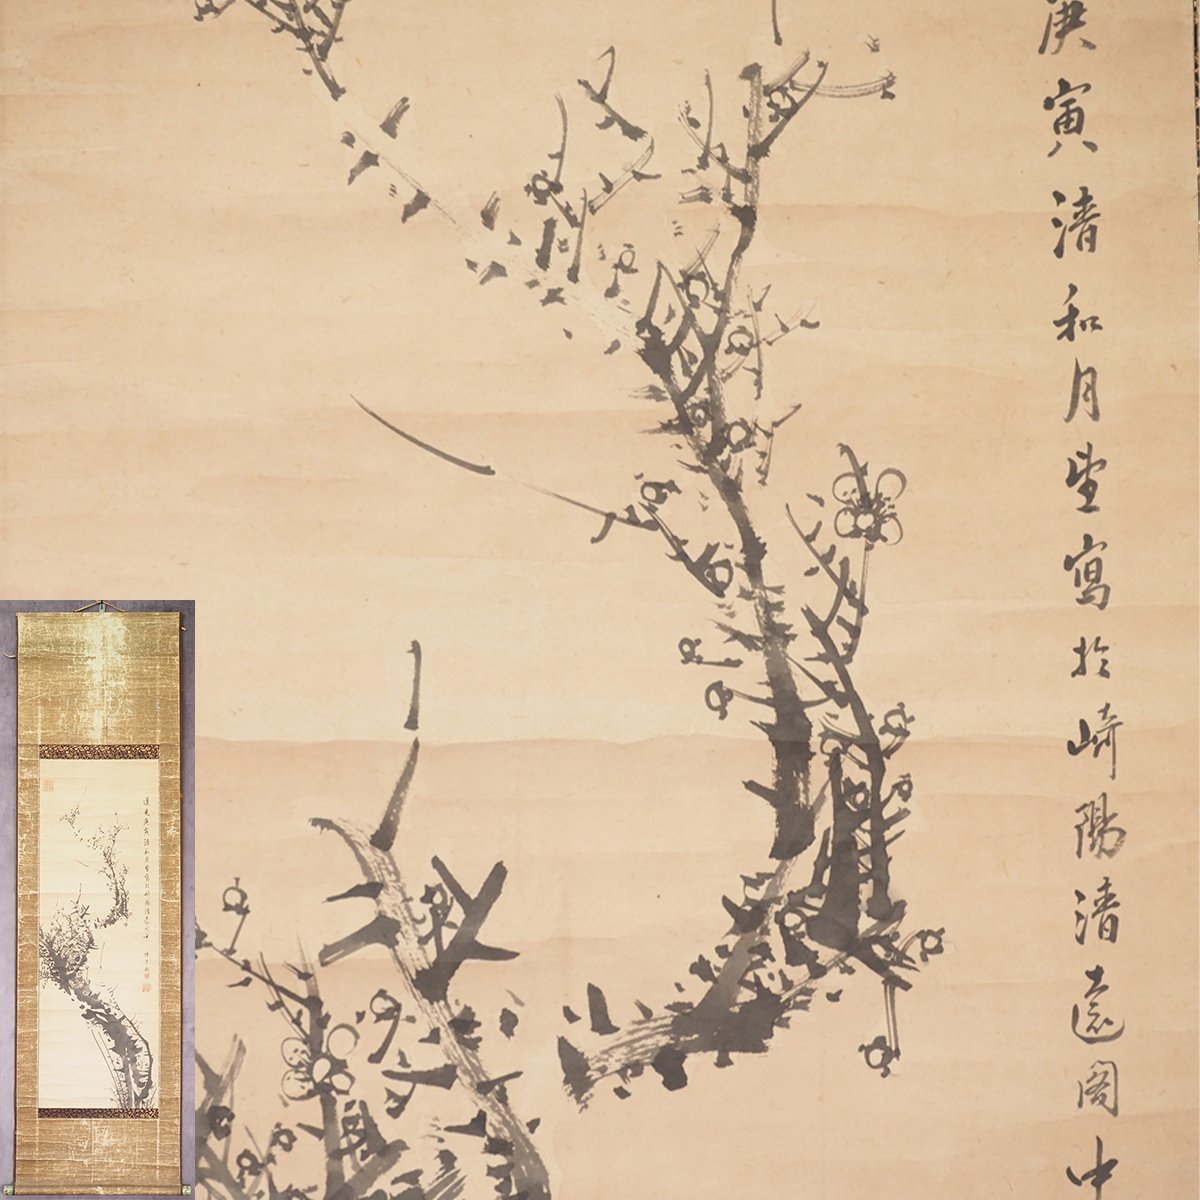 庚寅清和月望寫於崎陽清遠閣中